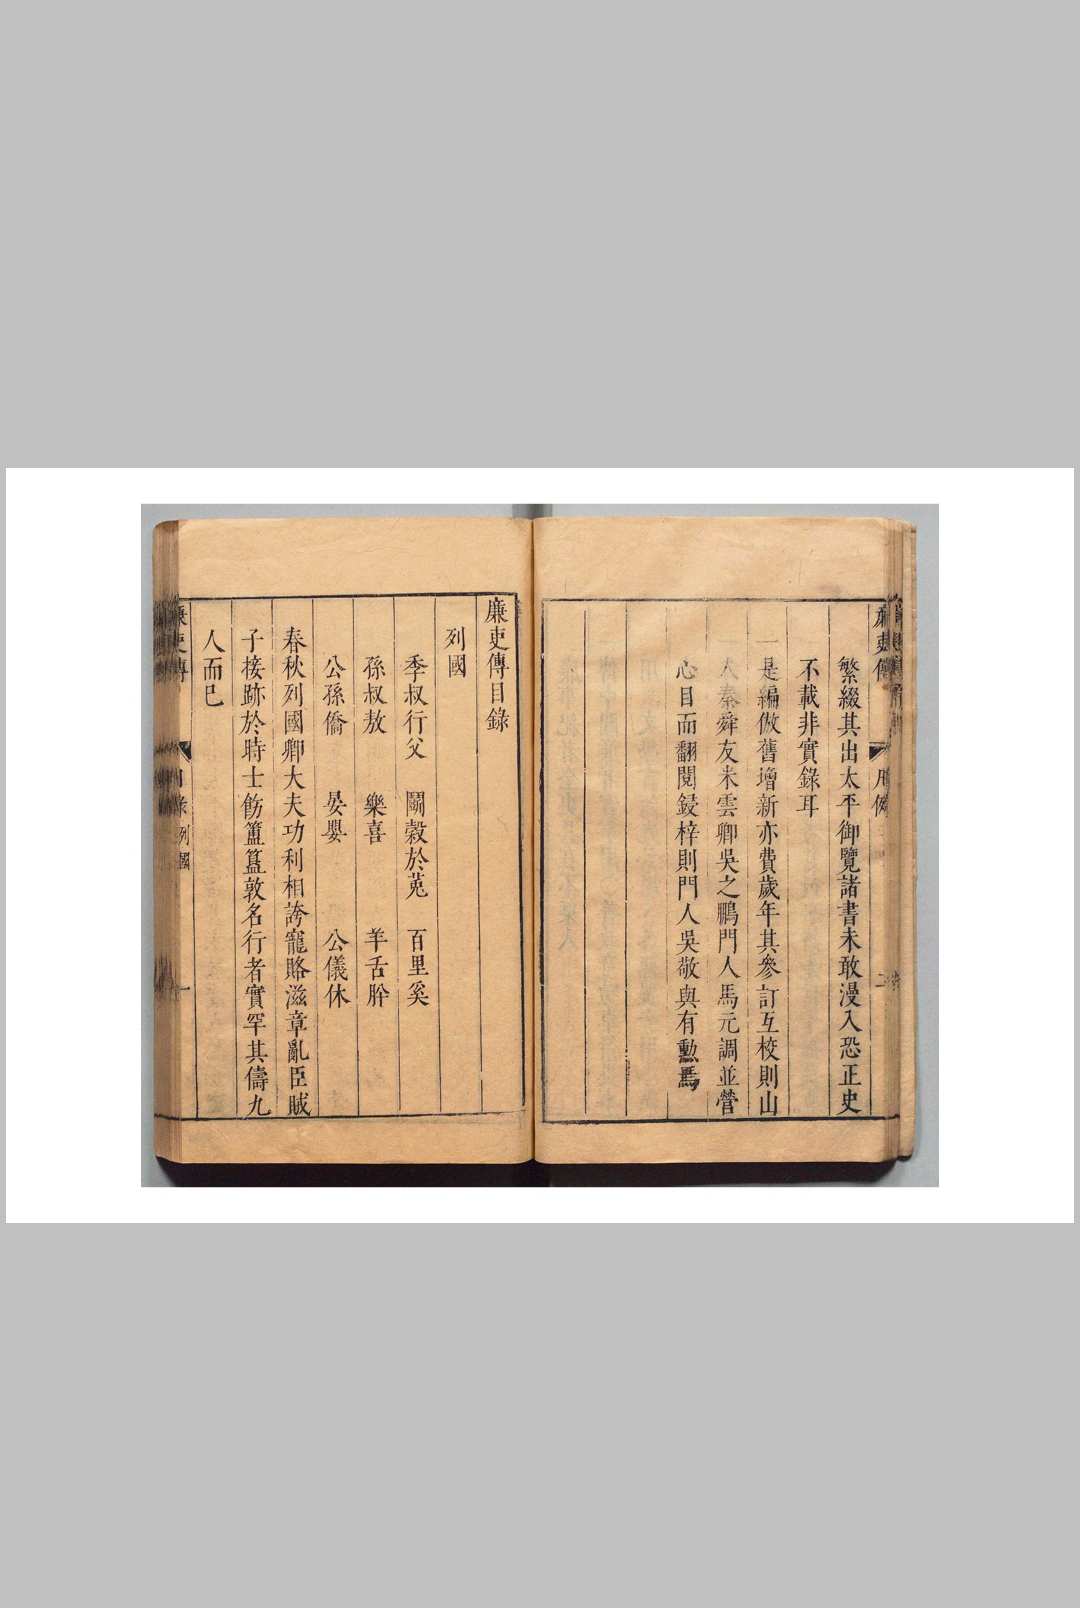 繁綴其出太平御覽諸書未敢漫入恐正史
不載非實錄耳
一是編倣舊增新亦費歲年其參訂互校則山
人秦舜友米雲卿吳之鵬門人馬元調並營
心目而翻閱鋟梓則門人吳敬與有勳焉
廉吏傳目錄
列國
季叔行父 鬭穀於菟 百里奚
孫叔敖 樂喜 羊舌肸
公孫僑 晏嬰 公儀休
春秋列國卿大夫功利相誇寵賂滋章亂臣賊
子接跡於時士飭簠簋敦名行者實罕其儔九
人而已
廉吏傳 目錄 列國 一